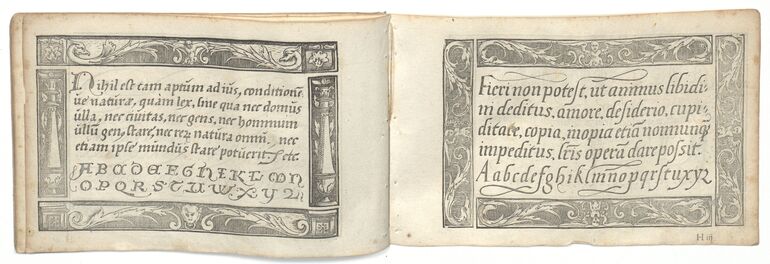 Nihil est tam aptum ad ius, conditionē
ve naturæ, quàm lex, sine qua nec domus
ulla, nec ciuitas, nec gens, nec hominum
ullū gen9 stare, nec rerū natura omnis, nec
etiam ipse mundus stare potuerit. &c.
ABCDEFGHIKLMN
OPQRSTUWXYZ
Fieri non potest, ut animus libidi-
ni deditus, amore, desiderio, cupi-
ditate, copia, inopia etiā nonnunq̃
impeditus, lr̃is operā dare possit.
Aabcdefghiklmnopqrstuxyz
H iij